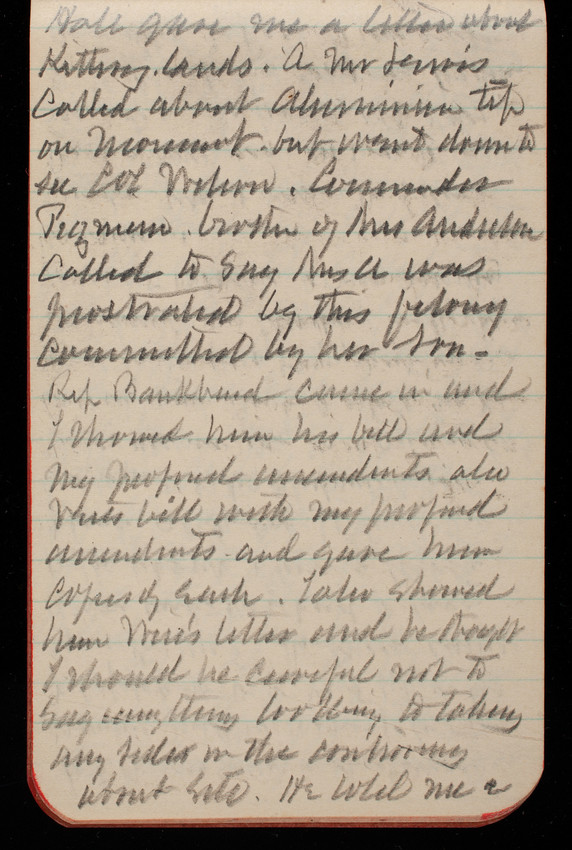 Hall gave me a letter about
Kittery lands. A Mr Lewis
Called about Aluminium tip
on Monument. but went down to
see Col Wilson. Commander
brother of Mrs Anderson
Called to Say Mrs A was
prostrated by this felony
committed by her Son-
Rep Bankhead came in and
I showed him his bill and
my proposed amendments also
bill with my proposed
amendments and gave him
Copies of Each. I also showed
him letter and he thought
I should be careful not to
Say anything looking to taking
any sides in the controversy
about Site. He told me a